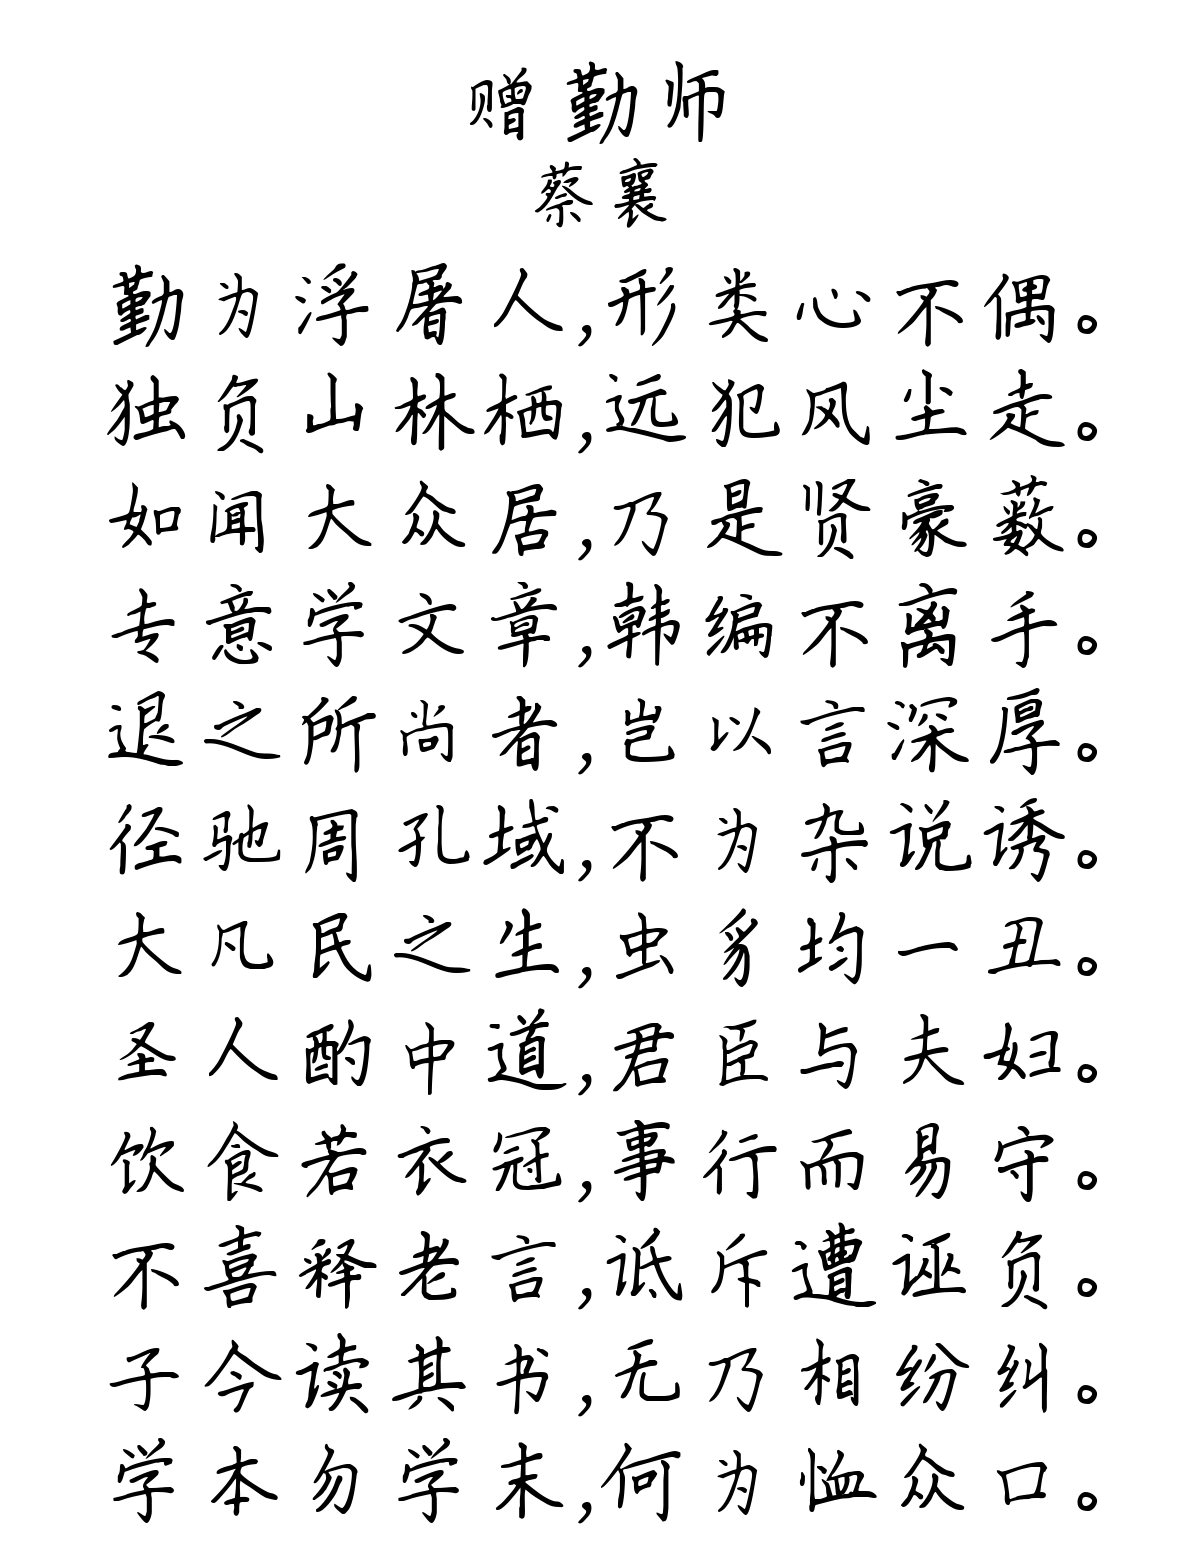 赠勤师
蔡襄
勤为浮屠人,形类心不偶。
独负山林栖,远犯风尘走。
如闻大众居,乃是贤豪薮。
专意学文章,韩编不离手。
退之所尚者,岂以言深厚。
径驰周孔域,不为杂说诱。
大凡民之生,虫豸均一丑。
圣人酌中道,君臣与夫妇。
饮食若衣冠,事行而易守。
不喜释老言,诋斥遭诬负。
子今读其书,无乃相纷纠。
学本勿学末,何为恤众口。